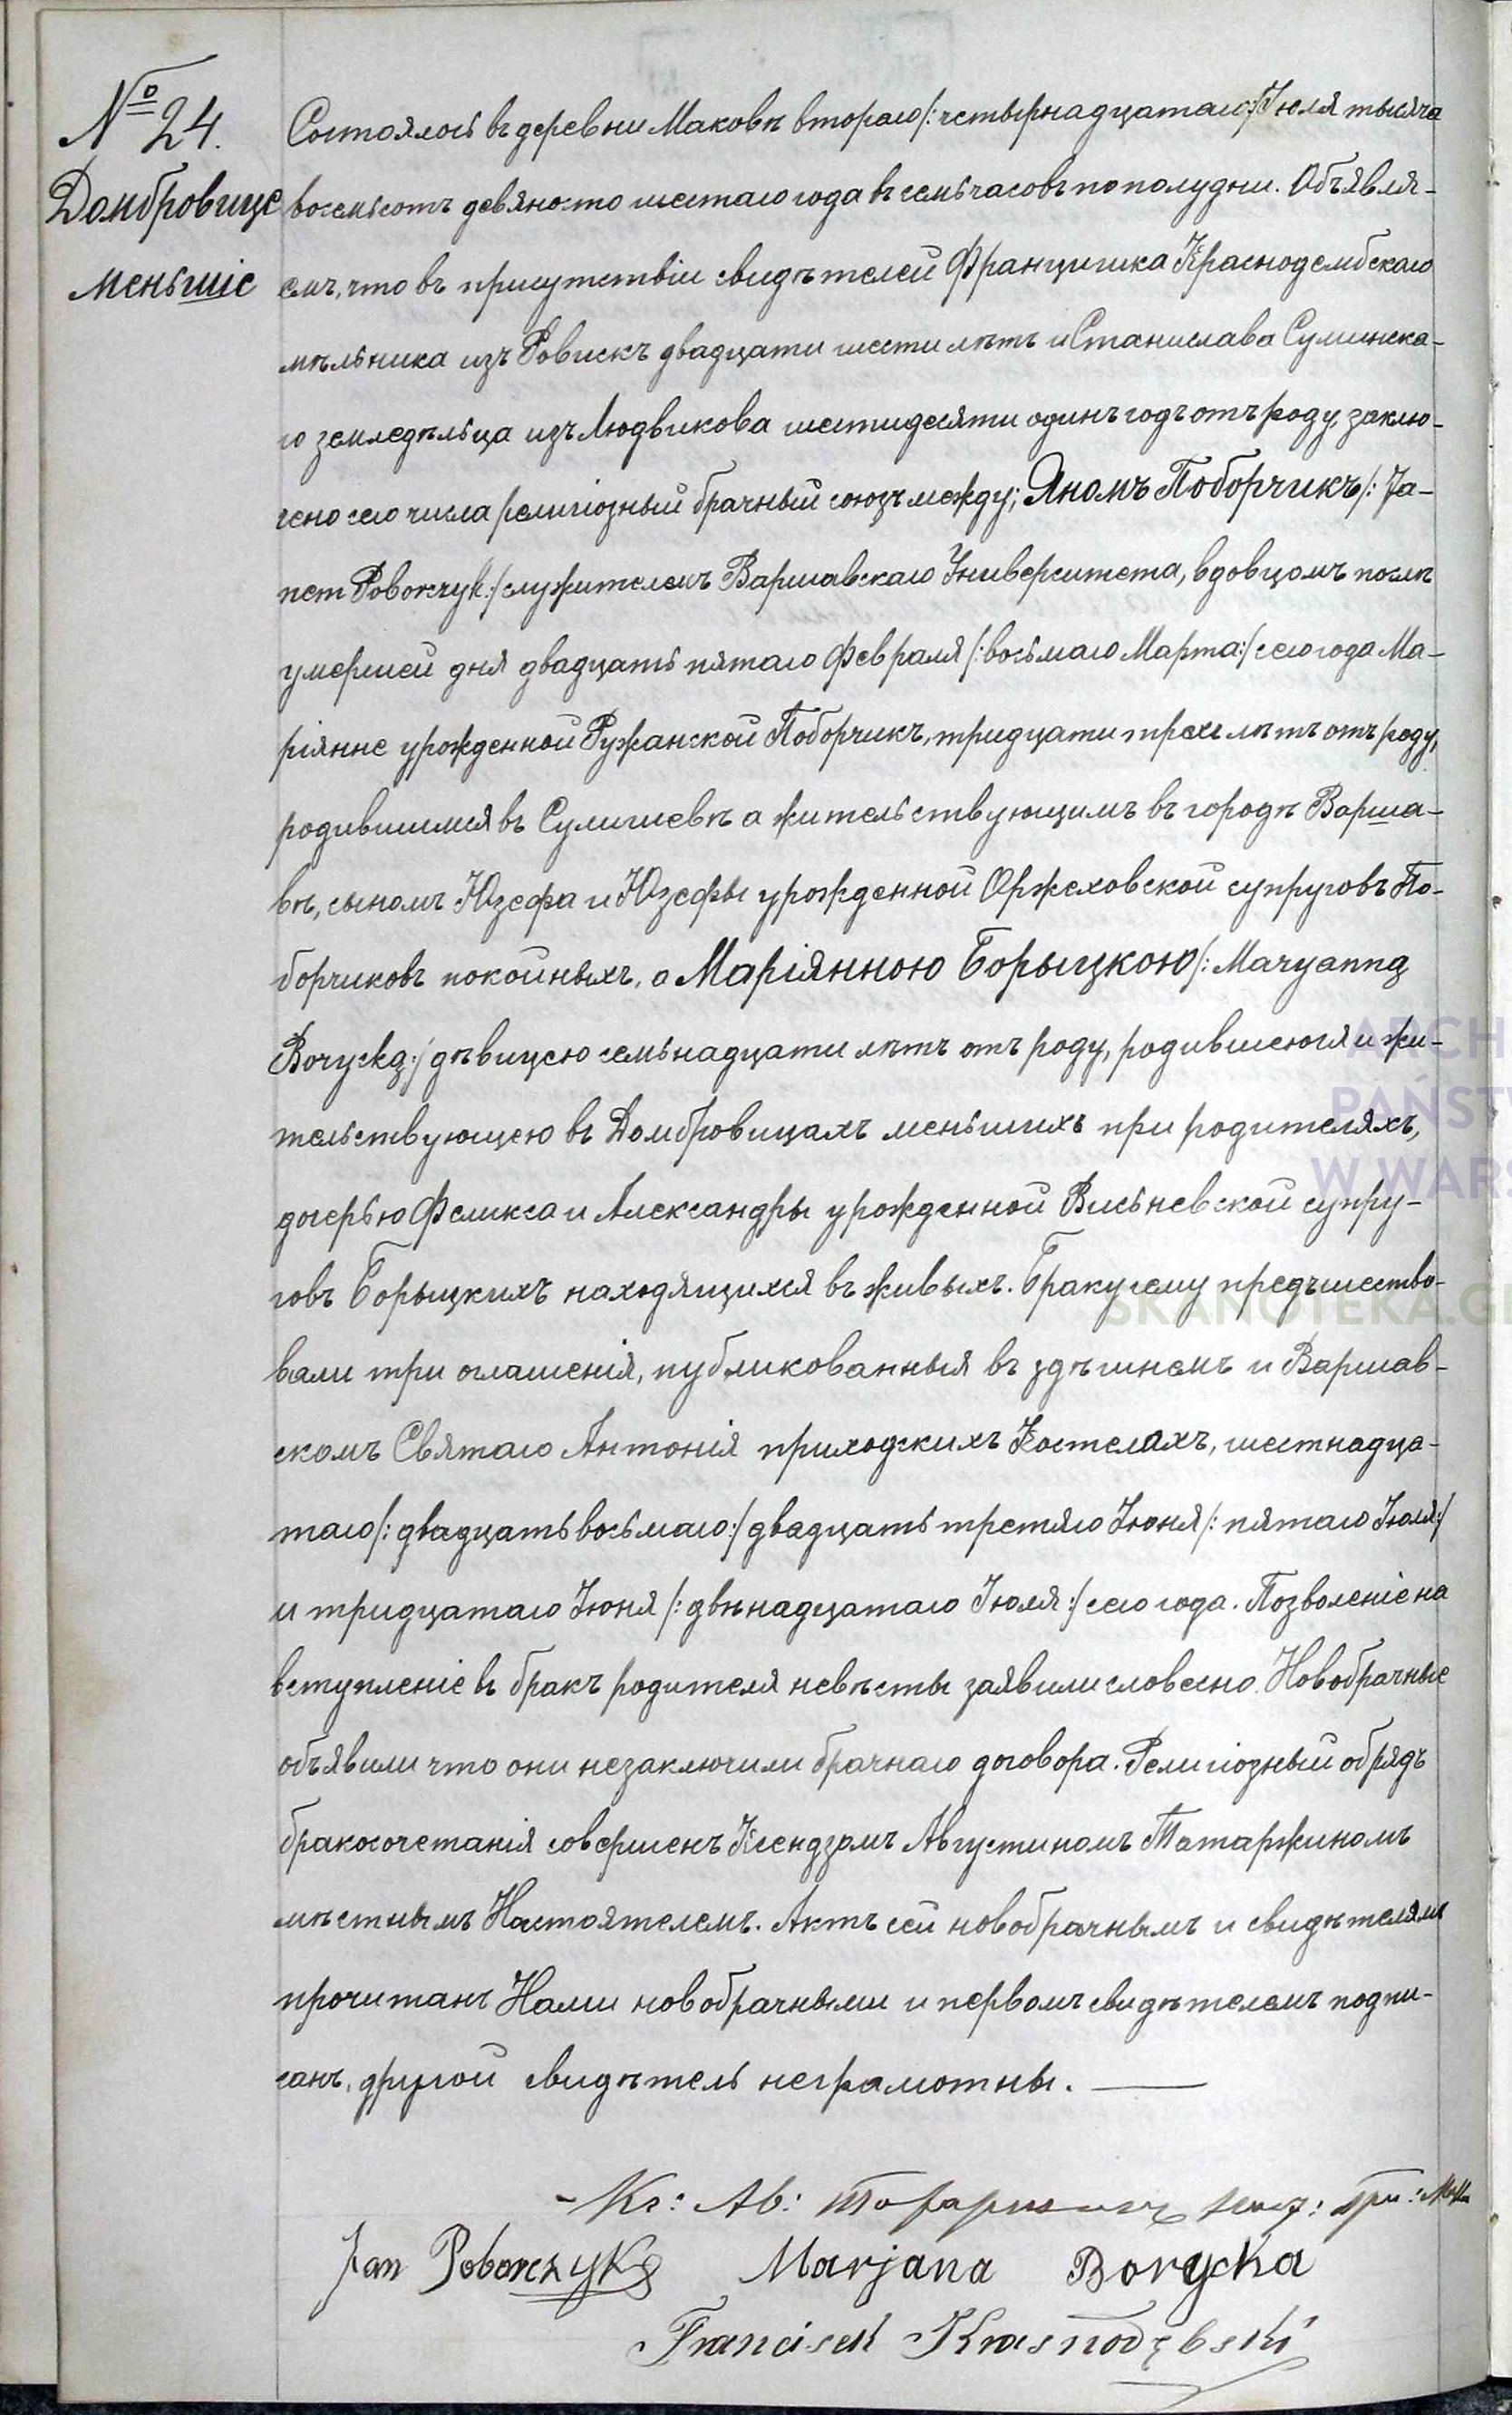 № 24.
Домбровице
меньшіе
Состоялось въ деревни Маковѣ втораго /:четырнадцатаго:/ Іюля тысяча
восемьсотъ девяносто шестаго года въ семь часовъ по полудни. Объявля-
емъ, что въ присутствіи свидѣтелей Францишка Краснодембскаго
мѣльника изъ Ровискъ двадцати шести лѣтъ и Станислава Суминска-
го земледѣльца изъ Людвикова шестидесяти одинъ годъ отъ роду, заклю-
чено сего числа религіозный брачный союзъ между; Яномъ Поборчикъ /:Ja-
nem Poborczyk:/ служителемъ Варшавскаго Университета, вдовцомъ послѣ
умершей дня двадцать пятаго Февраля /:восьмаго Марта:/ сего года Ма-
ріянне урожденной Ружанской Поборчикъ, тридцати трехъ лѣтъ отъ роду,
родившимся въ Сулишевѣ а жительствующимъ въ городѣ Варша-
вѣ, сыномъ Юзефа и Юзефы урожденной Оржеховской супруговъ По-
борчиковъ покойныхъ, а Маріянною Борыцкою /:Maryanną
Borycką:/ дѣвицею семьнадцати лѣтъ отъ роду, родившеюся и жи-
тельствующею въ Домбровицахъ меньшихъ при родителяхъ,
дочерью Феликса и Александры урожденной Висьневской супру-
говъ Борыцкихъ находящихся въ живыхъ. Браку сему предъшество-
вали три оглашенія, публикованныя въ здѣшнемъ и Варшав-
скомъ Святаго Антонія приходскихъ Костелахъ, шестнадца-
таго /:двадцать восьмаго:/ двадцать третяго Іюня /:пятаго Іюля:/
и тридцатаго Іюня /:двѣнадцатаго Іюля:/ сего года. Позволеніе на
вступленіе въ бракъ родителя невѣсты заявили словесно. Новобрачные
объявили что они незаключили брачнаго договора. Религіозный обрядъ
бракосочетанія совершенъ Ксендзомъ Августиномъ Татаржиномъ
мѣстнымъ Настоятелемъ. Актъ сей новобрачнымъ и свидѣтелямъ
прочитанъ Нами новобрачными и первомъ свидѣтелемъ подпи-
санъ, другой свидѣтель неграмотны.
Кс: Ав:
Jan Poborczyk Marjana Borycka
Francisek Krasnodębski
ARCH
PAŃSTW
W WARS
SKANOTEKA.GE